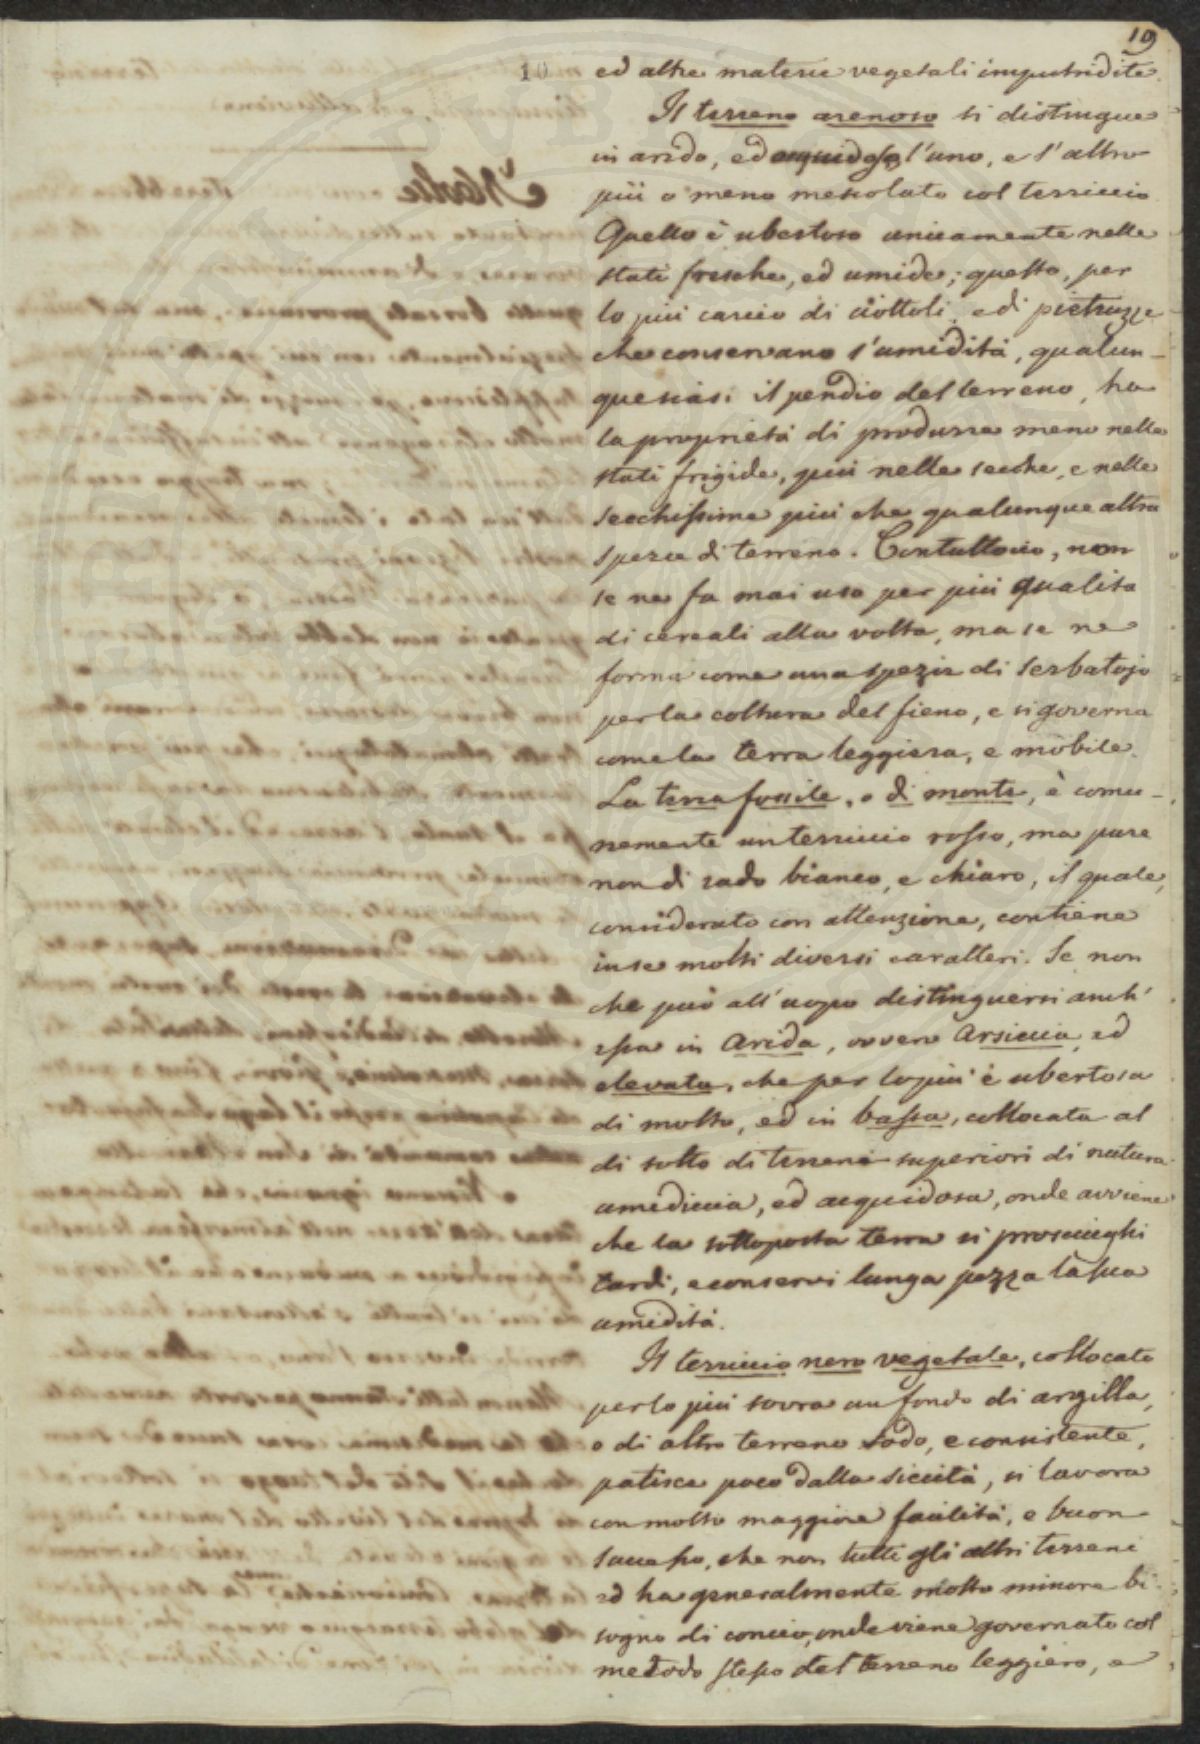 19
10
ed altre materie vegetali imputridite.
Il terreno arenoso si distingue
in arido, ed acquidoso l'uno, e l'altro
più o meno mescolato col terriccio.
Quello è ubertoso unicamente nelle
stati fresche, ed umide; questo, per
lo più carico di ciottoli, e di pietruzze
che conservano l'umidità, qualun-
quesiasi il pendio del terreno, ha
la proprietà di produrre meno nelle
stati frigide, più nelle secche, e nelle
secchissime più che qualunque altra
spezie di terreno. Contuttociò, non
se ne fa mai uso per più qualità
di cereali alla volta, ma se ne
forma come una spezie di serbatojo
per la coltura del fieno, e si governa
come la terra leggiera, e mobile.
La terra fossile, o di monte, è comu-
nemente un terriccio rosso, ma pure
non di rado bianco, e chiaro, il quale,
considerato con attenzione, contiene
in se molti diversi caratteri. Se non
che può all'uopo distinguersi anch'
essa in arida, ovvero arsiccia, ed
elevata, che per lo più è ubertosa
di molto, ed in bassa, collocata al
di sotto di terreni superiori di natura
umidiccia, ed acquidosa, onde avviene
che la sottoposta terra si prosciughi
tardi, e conservi lunga pezza la sua
umidità.
Il terriccio nero vegetale, collocato
per lo più sovra un fondo di argilla,
o di altro terreno sodo, e consistente,
patisce poco dalla siccità, si lavora
con molto maggiore facilità, e buon
successo, che non tutti gli altri terreni
ed ha generalmente molto minore bi-
sogno di concio, onde viene governato col
metodo stesso del terreno leggiero, e